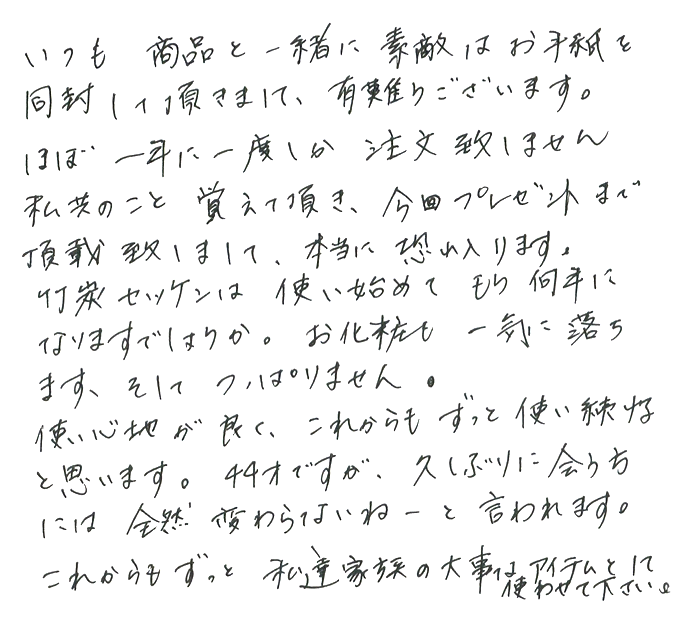 いつも 商品と一緒に 素敵な お手紙を
同封して頂きまして、有難うございます。
ほぼ 一年に一度しか 注文致しません
私共のこと 覚えて頂き、今回プレゼントまで
頂戴致しまして、本当に 恐れ入ります。
竹炭セッケンは 使い始めて もう何年に
なりますでしょうか。 お化粧も 一気に落ち
ます、そして つっぱりません。
使い心地が良く、これからも ずっと使い続ける
と思います。 44才ですが、久しぶりに会う方
には 全然 変わらないねーと言われます。
これからもずっと 私達家族の大事なアイテムとして
使わせて下さい。